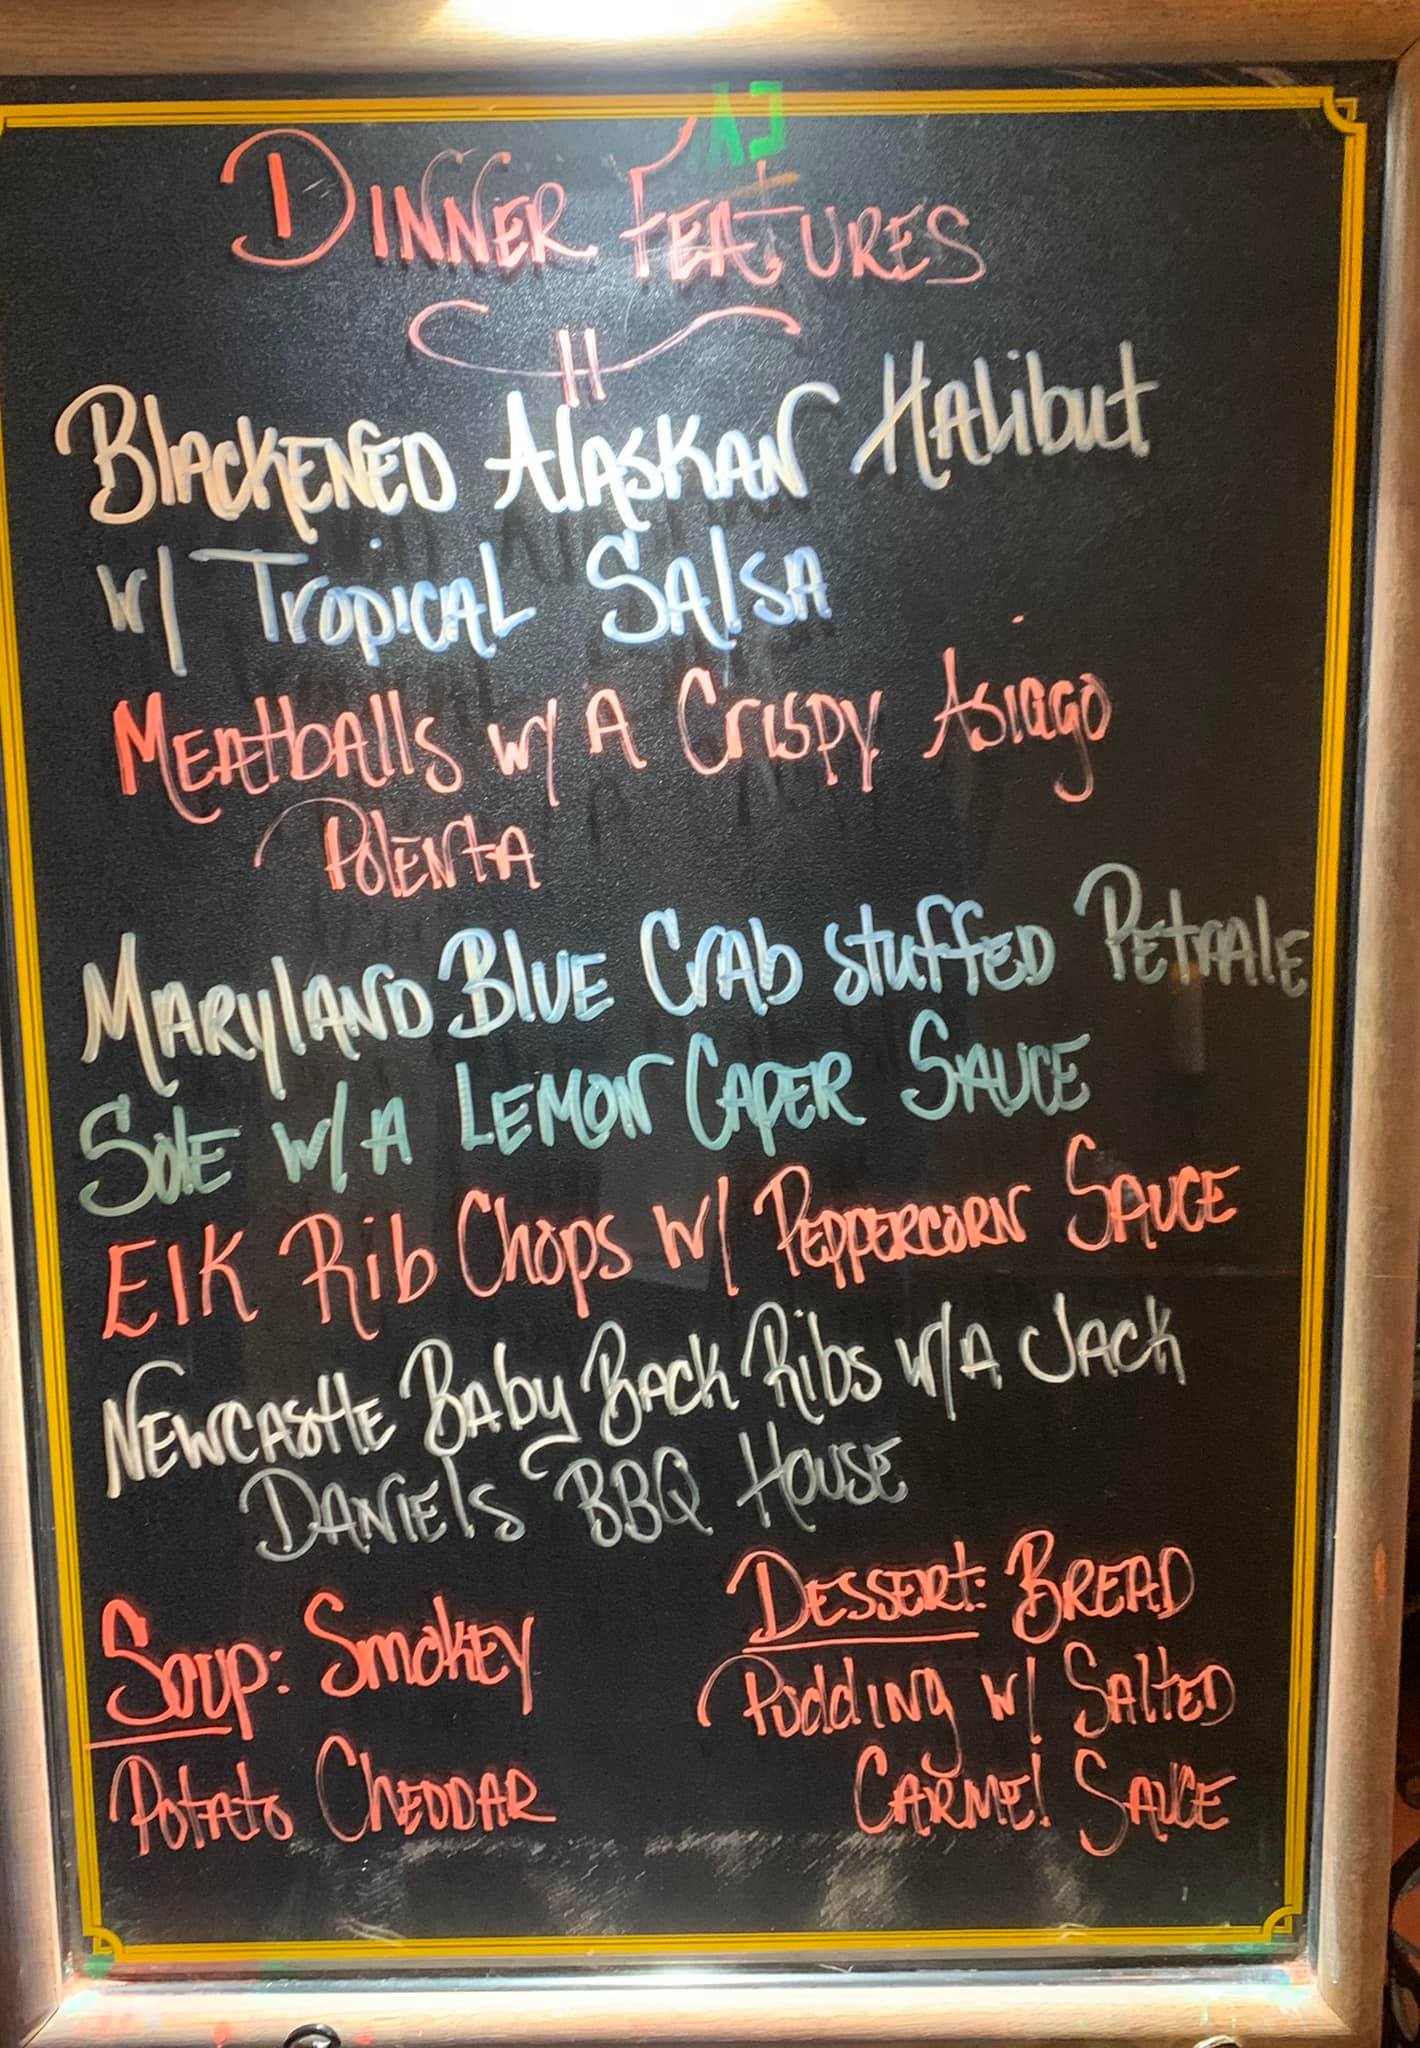 Dinner Features
Blackened Alaskan Halibut
w/ Tropical Salsa
Meatballs w/ A Crispy Asiago
Polenta
Maryland Blue Crab stuffed Petrale
Sole w/ A Lemon Caper Sauce
Elk Rib Chops w/ Peppercorn Sauce
Newcastle Baby Back Ribs w/ A Jack
Daniels BBQ House
Soup: Smokey
Potato Cheddar
Dessert: Bread
Pudding w/ Salted
Carmel Sauce